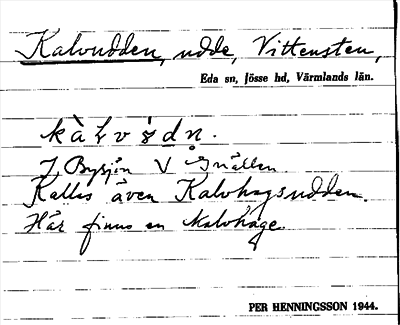 Kalvudden, udde, Vittensten,
Eda sn, Jösse hd, Värmlands län.
kàlvùdn.
I Bysjön V Gnällen.
Kallas även Kalvhagsudden.
Här finns en kalvhage.
PER HENNINGSSON 1944.